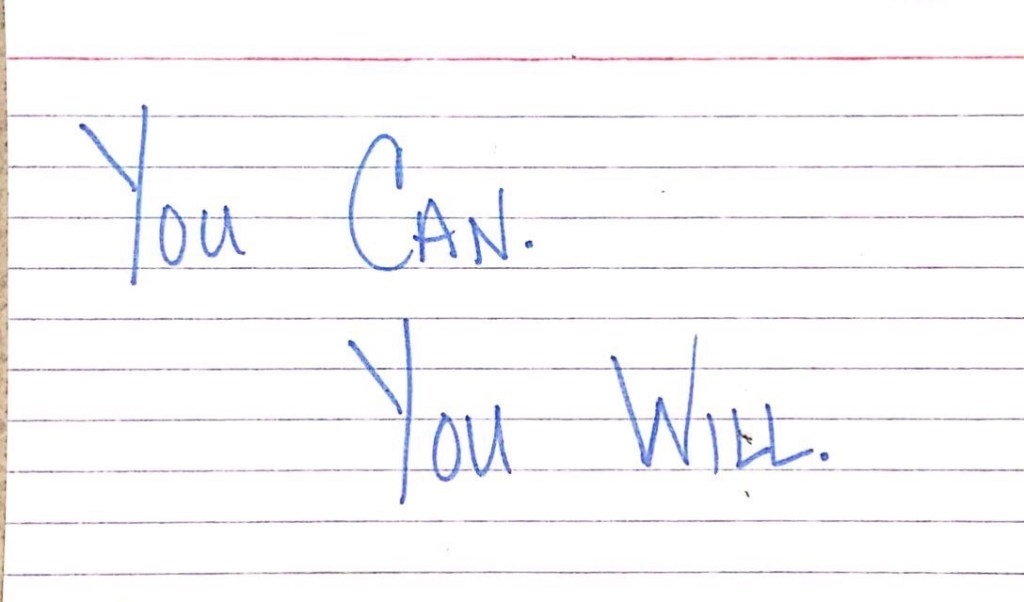 You Can.
You Will.